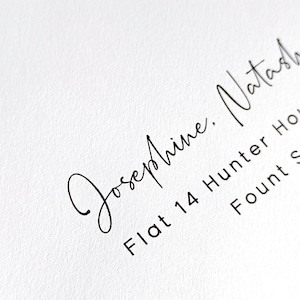 Josephine, Natash
Flat 14 Hunter Hou
Fount S